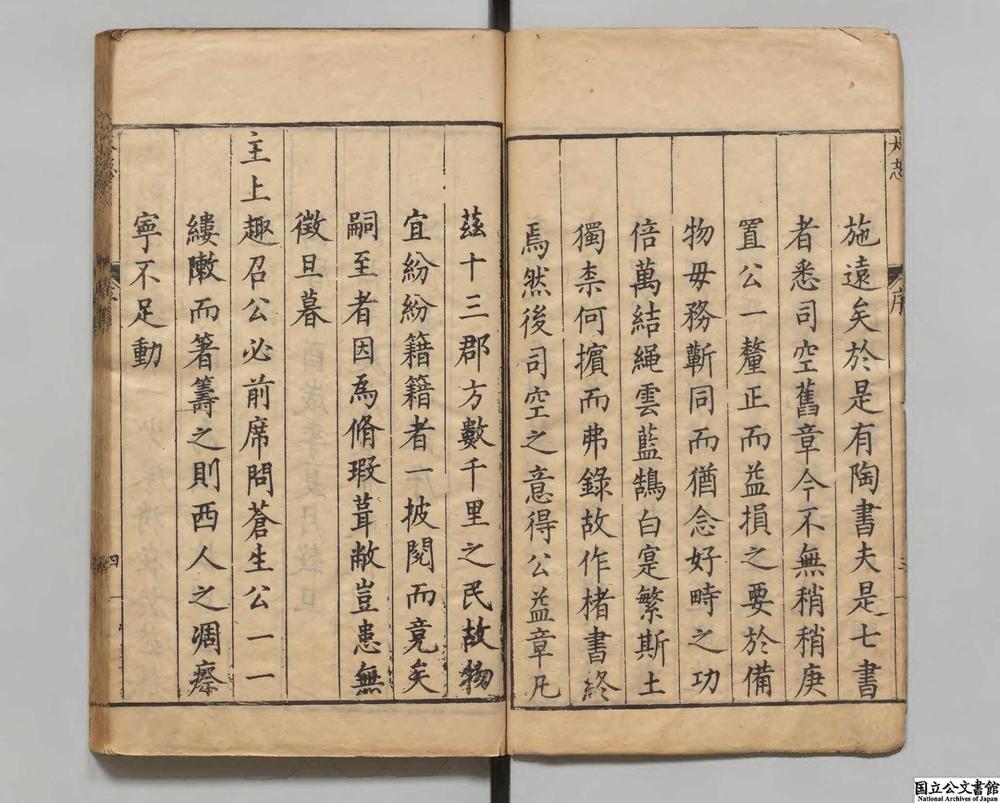 施遠矣於是有陶書夫是七書
者悉司空舊章今不無稍稍庚
置公一釐正而益損之要於備
物毋務蘄同而猶念好畤之功
倍萬結繩雲藍鵠白寔繁斯土
獨柰何擯而弗錄故作楮書終
焉然後司空之意得公益章凡
茲十三郡方數千里之民故物
宜紛紛籍籍者一披閱而竟矣
嗣至者因爲脩瑕葺敝豈患無
徵旦暮
主上趣召公必前席問蒼生公一一
縷陳而箸籌之則西人之凋瘵
寧不足動
序
三
四
国立公文書館
National Archives of Japan